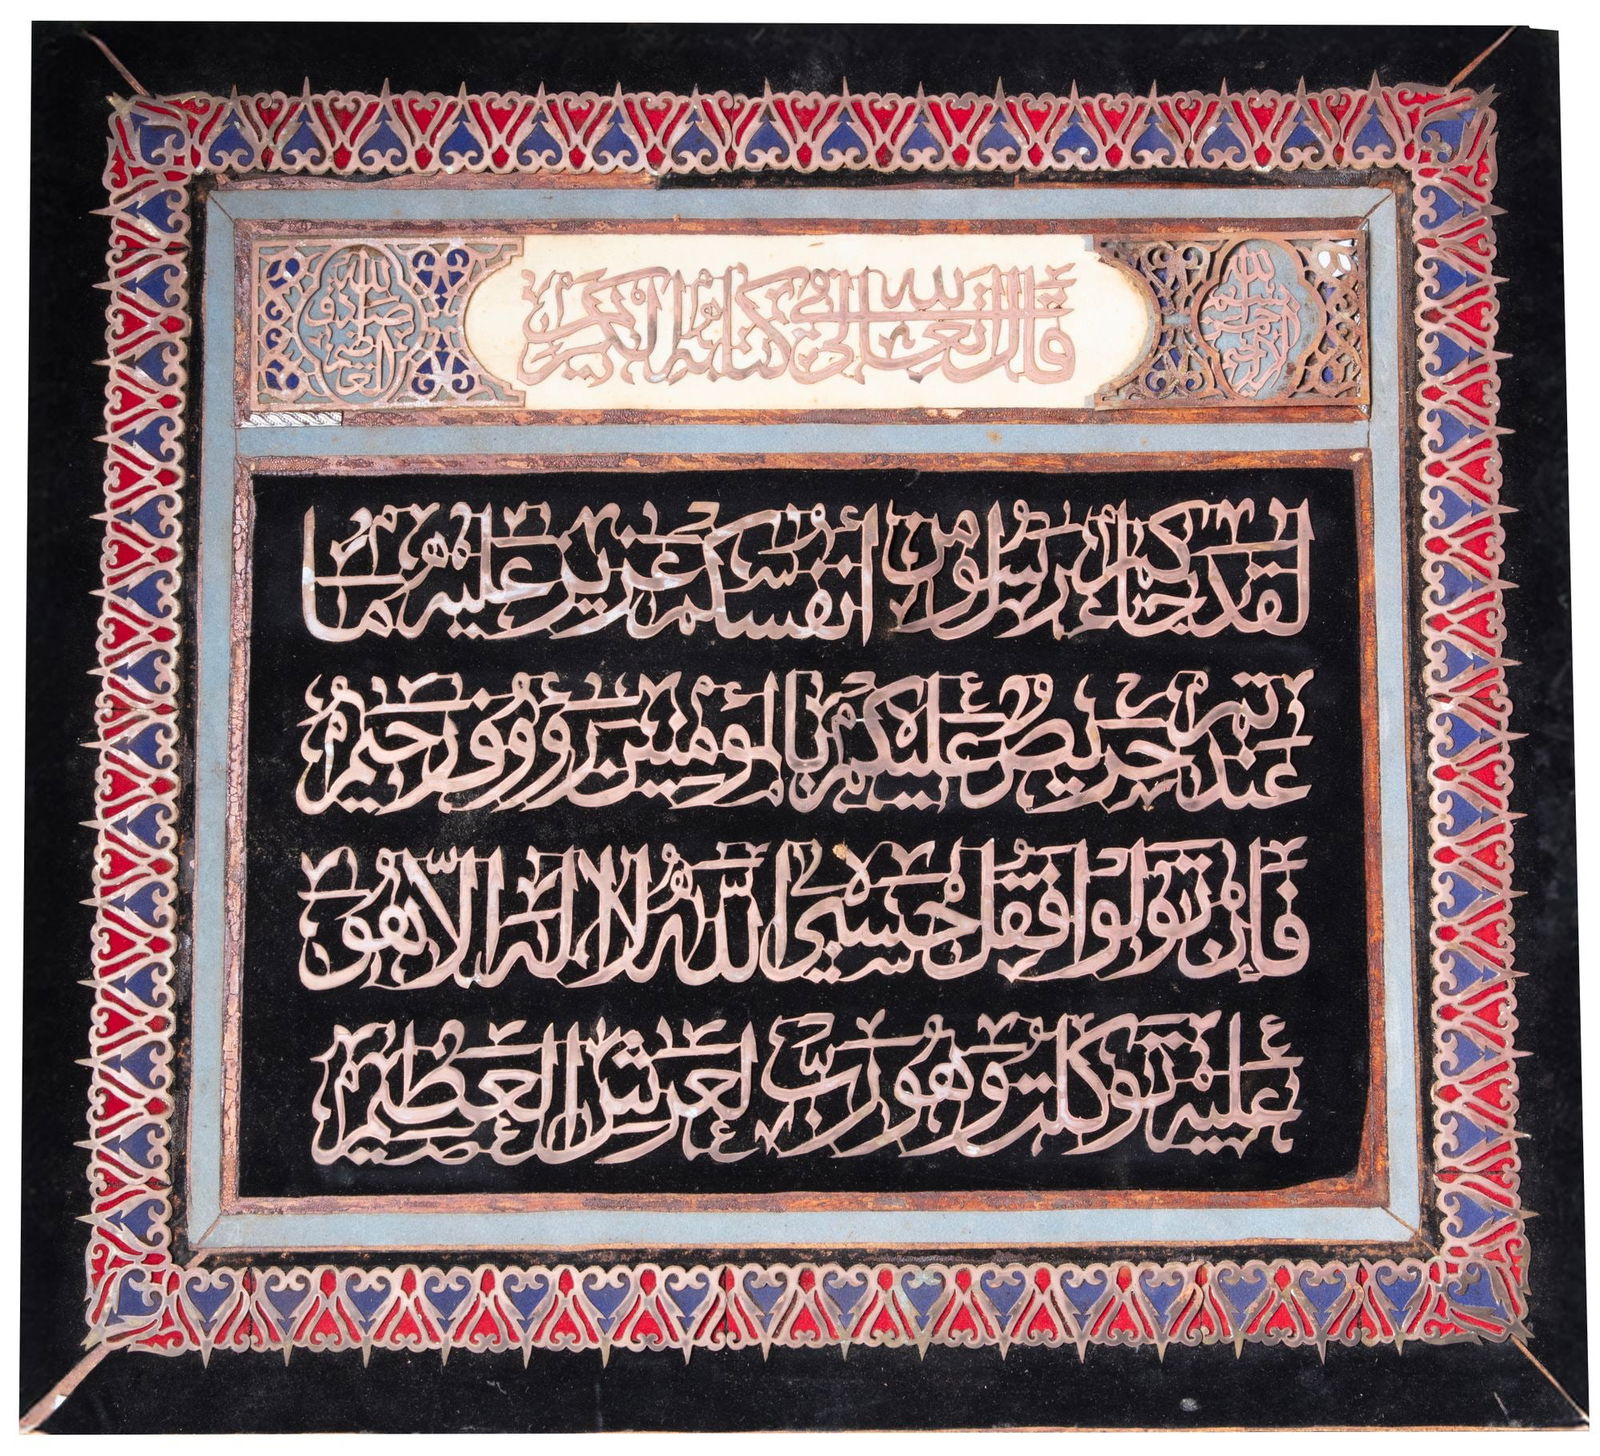 بسم الله الرحمن الرحيم
قال الله تعالى في كتابه الكريم
صدق الله العظيم
لقد جاءكم رسول من أنفسكم عزيز عليه ما
عنتم حريص عليكم بالمؤمنين رؤوف رحيم
فإن تولوا فقل حسبي الله لا إله إلا هو
عليه توكلت وهو رب العرش العظيم